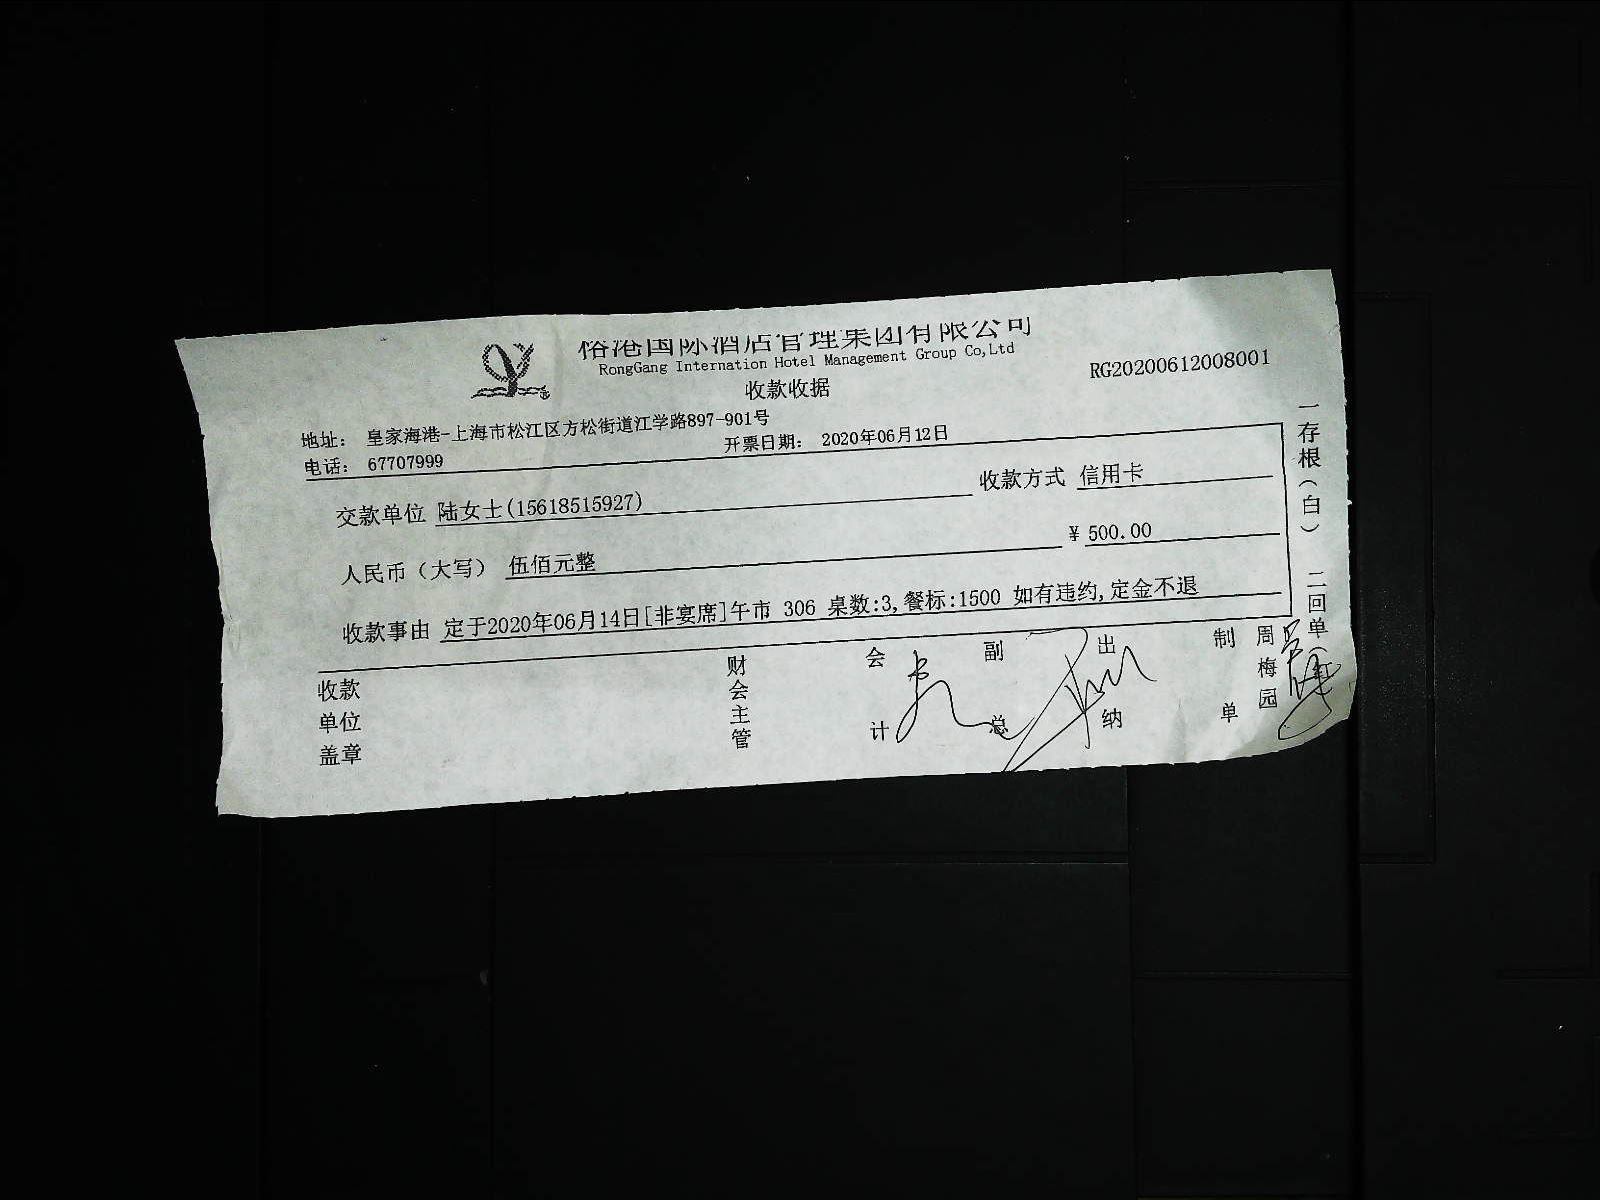 国际酒店管理集团有限公司
RongGang Internation Hotel Management Group Co,Ltd
收款收据
RG20200612008001
地址： 皇家海港-上海市松江区方松街道江学路897-901号
电话： 67707999
开票日期： 2020年06月12日
交款单位 陆女士(15618515927)
收款方式 信用卡
人民币（大写） 伍佰元整
¥ 500.00
收款事由 定于2020年06月14日[非宴席]午市 306 桌数:3,餐标:1500 如有违约,定金不退
收款单位盖章
财会主管
会计
副总
出纳
制单
周梅园
一存根（白） 二回单（